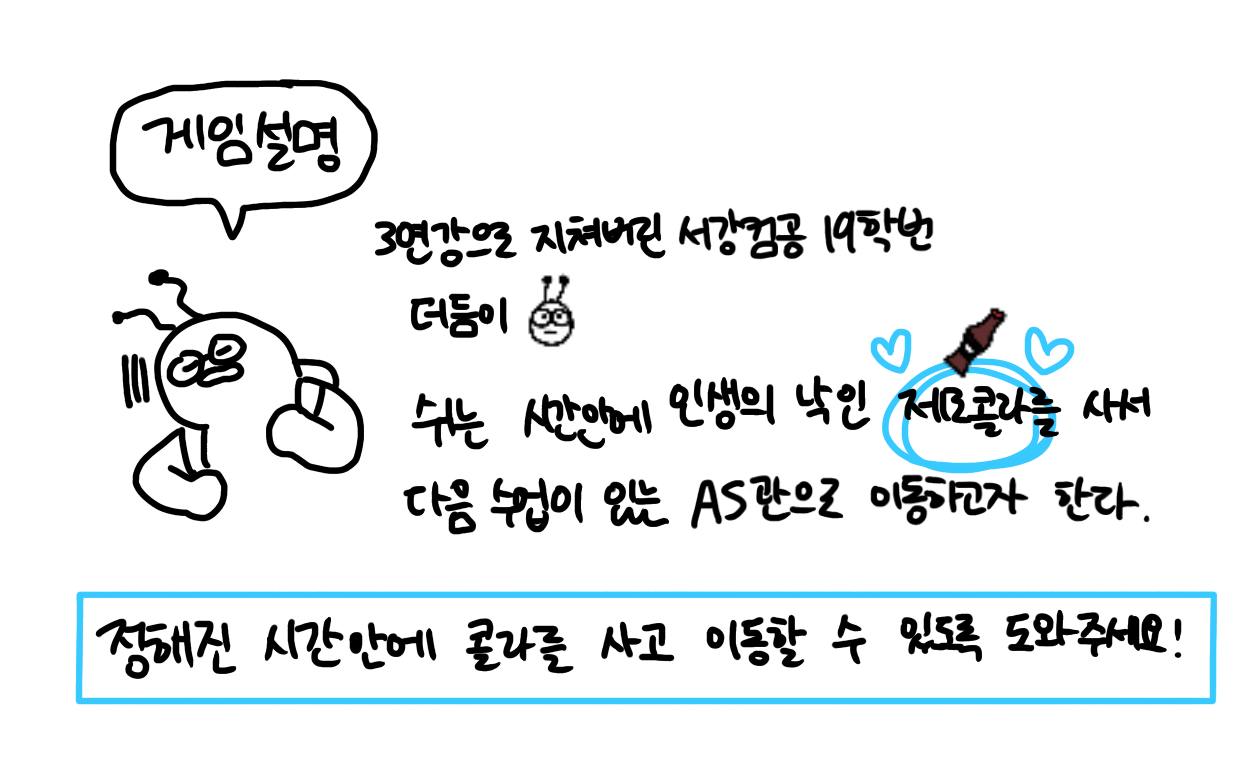 게임설명
3연강으로 지쳐버린 서강컴공 19학번
더듬이
쉬는 시간안에 인생의 낙인 제로콜라를 사서
다음 수업이 있는 AS관으로 이동하고자 한다.
정해진 시간안에 콜라를 사고 이동할 수 있도록 도와주세요!